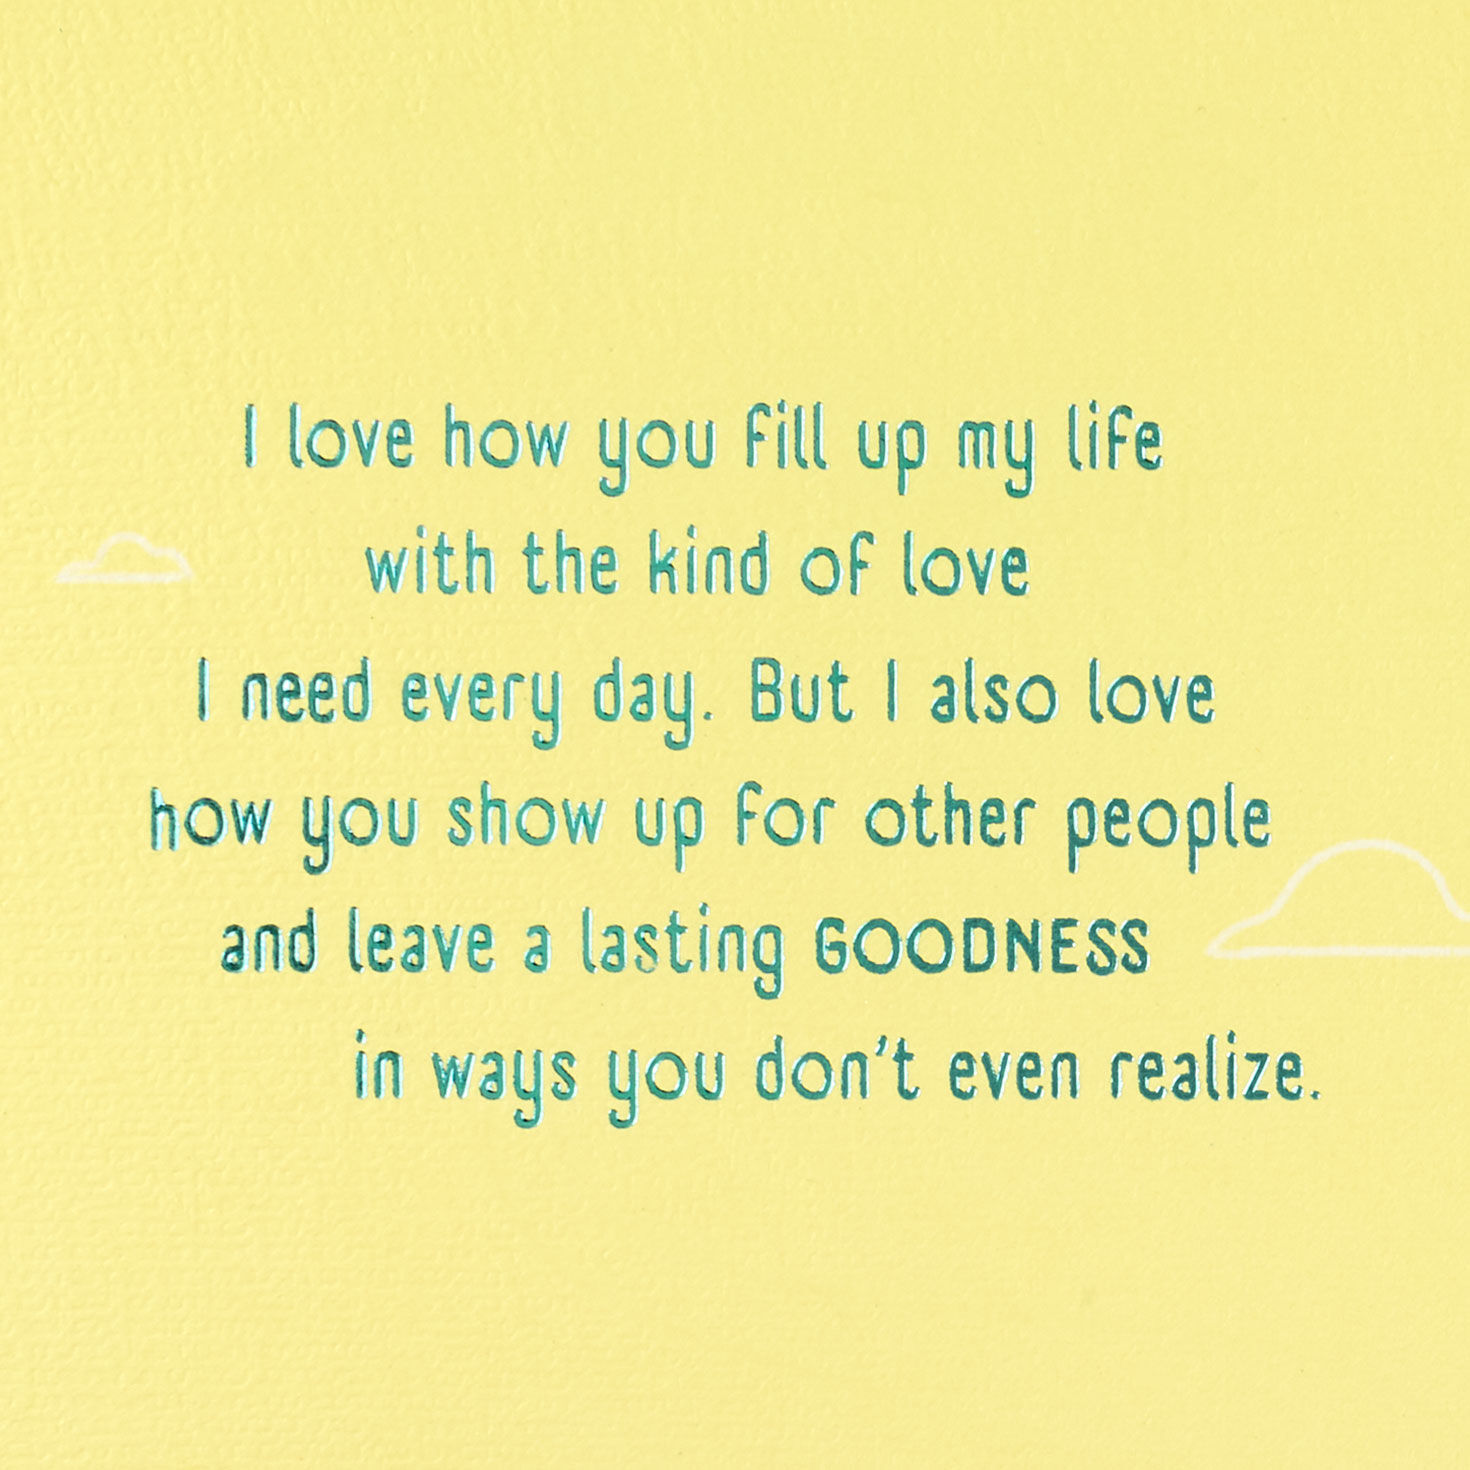 I love how you fill up my life
with the kind of love
I need every day. But I also love
how you show up for other people
and leave a lasting GOODNESS
in ways you don't even realize.